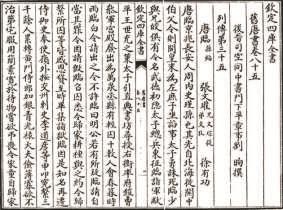 欽定四庫全書
舊唐書卷八十五
後晉司空同中書門下平章事劉昫撰
列傳第三十五
唐臨 孫紹 張文瓘 徐有功
唐臨京兆長安人周内史瑾孫也其先自北海徙關中
伯父令則開皇末為左庶子坐諂事太子勇誅死臨少
與兄皎俱有令名武德初隱太子總兵東征臨詣軍獻
欽定四庫全書
平王世充之策太子引直典書坊尋授右衛率府鎧曹
參軍宫殿廢出為萬泉丞縣有輕囚十數人會春暮時
雨臨白令請出之令不許臨曰明公若有所疑臨請自
當其罪令因請假臨召囚悉令歸家耕種與之約令歸
繫所囚等皆感恩貸至時畢集詣獄臨因是知名再遷
侍御史奉使嶺外按交州刺史李道彦等申叩冤繫三
千餘人累轉黄門侍郎加銀青光禄大夫儉薄寡欲不
治第宅服用簡素寬於待物嘗欲弔喪令家童自歸家